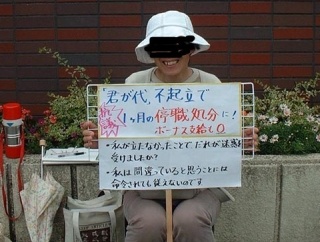 「君が代」不起立で
1ヶ月の停職処分に!
ボーナス支給も0
・私が立たなかったことでだれが迷惑
受けましたか?
・私は間違っていると思うことには
命令されても従えないのです